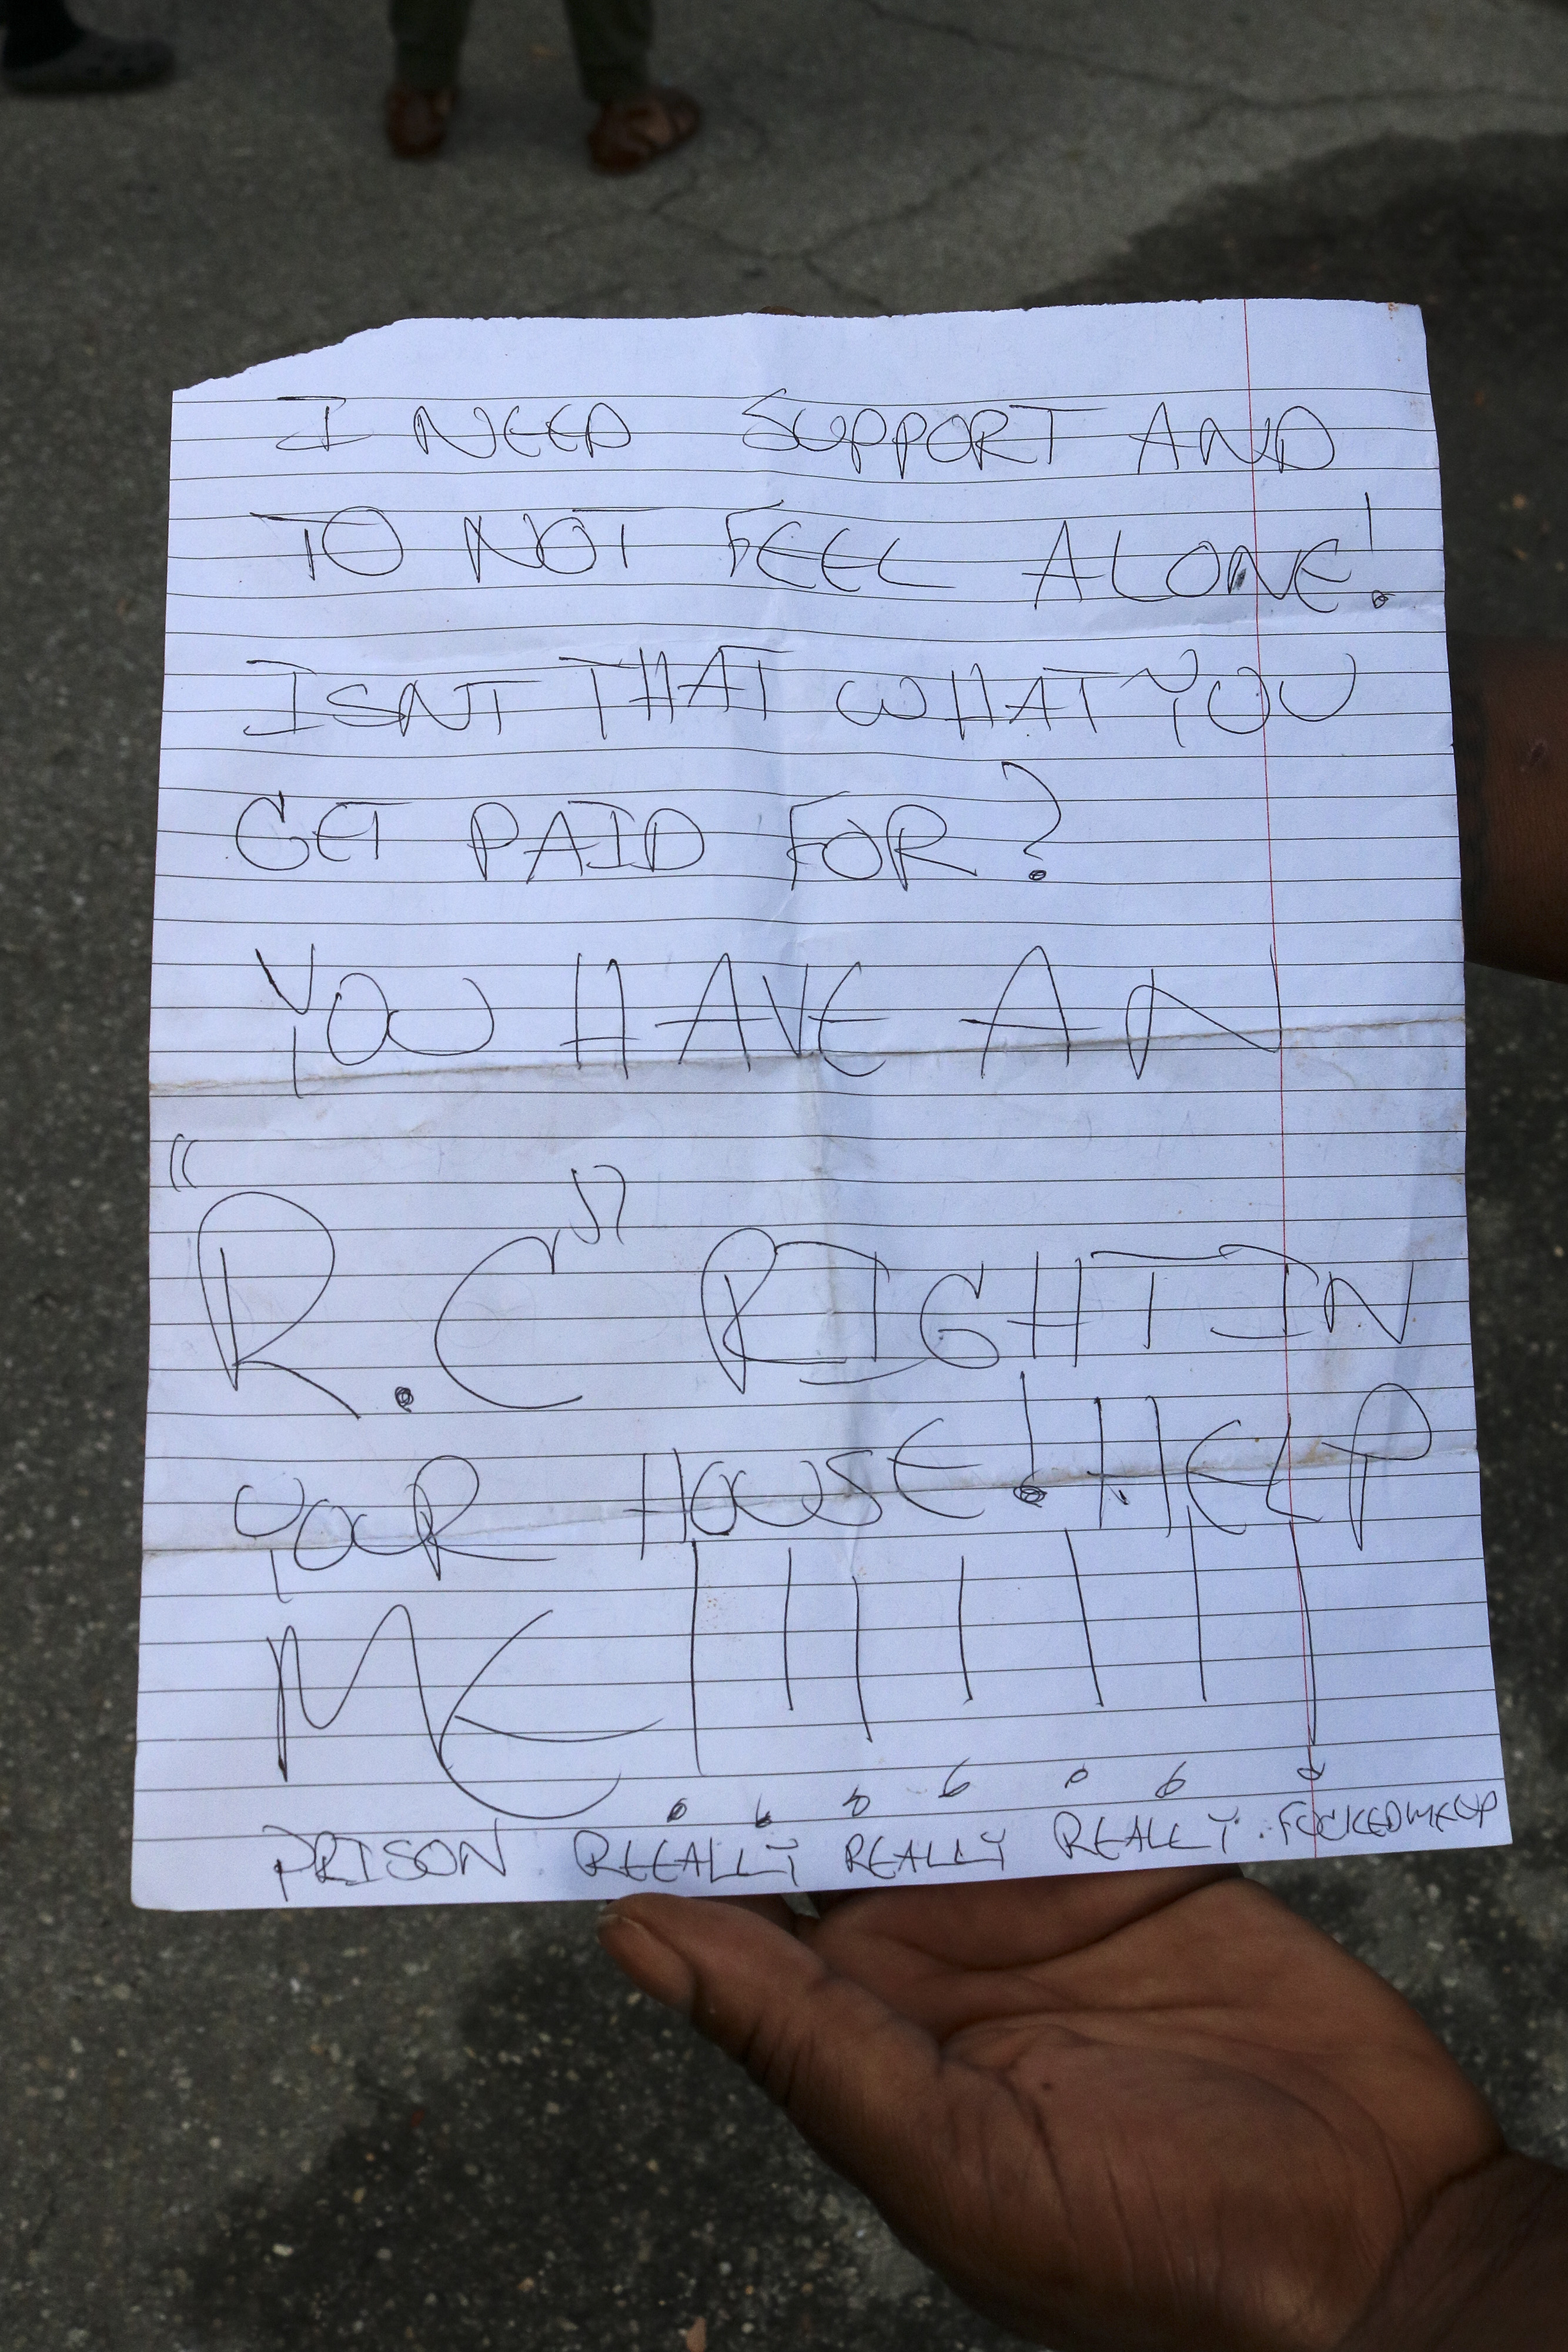 I NEED SUPPORT AND
TO NOT FEEL ALONE!
ISNT THAT WHAT YOU
GET PAID FOR?
YOU HAVE AN
"R.C" RIGHT IN
YOUR HOUSE! HELP
ME!!!!!!!
PRISON REEALLY REALLY REALLY FOCKEDMEUP